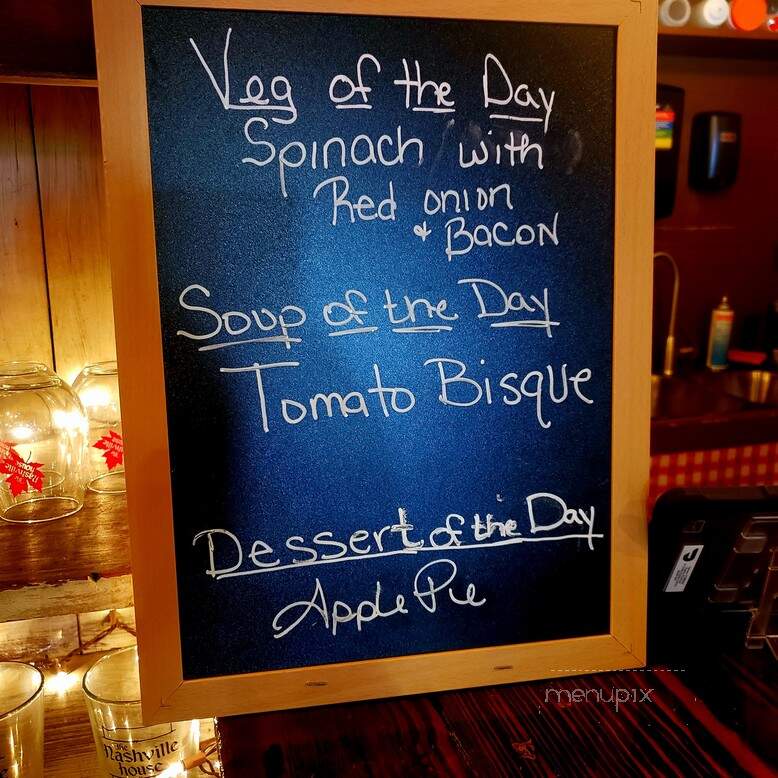 Veg of the Day
Spinach with
Red onion
& BACON
Soup of the Day
Tomato Bisque
Dessert of the Day
Apple Pie
The
Nashville
house
menupix